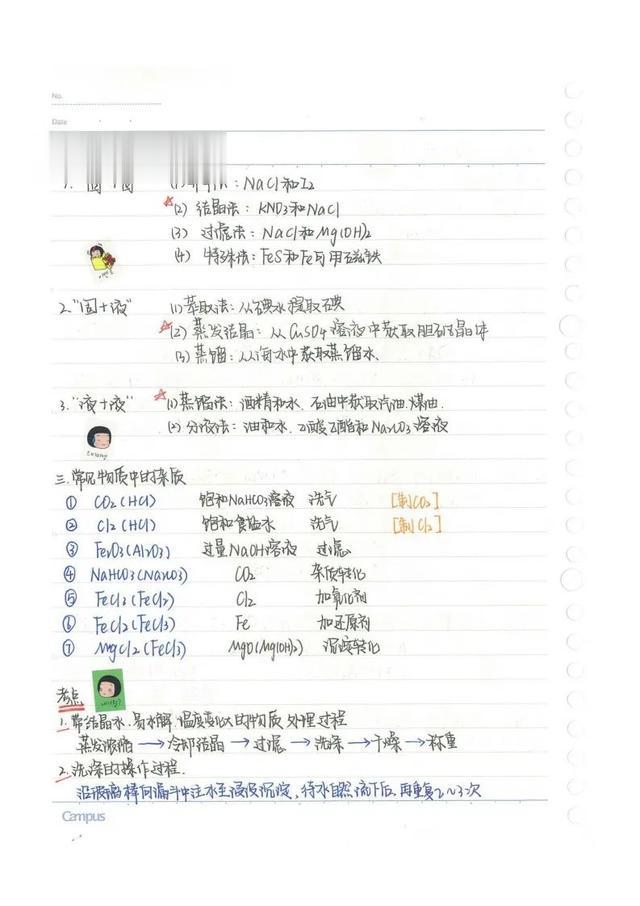 No.
Date
1. "固+固" (1) 升华法：NaCl和I2
☆(2) 结晶法：KNO3和NaCl
(3) 过滤法：NaCl和Mg(OH)2
(4) 特殊法：FeS和Fe可用磁铁
2."固+液" (1)萃取法：从碘水提取碘
☆(2) 蒸发结晶：从CuSO4溶液中获取胆矾晶体
(3)蒸馏：从海水中获取蒸馏水.
3."液+液" ☆(1)蒸馏法：酒精和水、石油中获取汽油.煤油.
(2)分液法：油和水.乙酸乙酯和Na2CO3溶液
三.常见物质中的杂质
① CO2(HCl) 饱和NaHCO3溶液 洗气 [制CO2]
② Cl2(HCl) 饱和食盐水 洗气 [制Cl2]
③ Fe2O3(Al2O3) 过量NaOH溶液 过滤
④ NaHCO3(Na2CO3) CO2 杂质转化
⑤ FeCl3(FeCl2) Cl2 加氧化剂
⑥ FeCl2(FeCl3) Fe 加还原剂
⑦ MgCl2(FeCl3) MgO(Mg(OH)2) 沉淀转化
考点
1.带结晶水.易水解.温度变化大的物质处理过程
蒸发浓缩→冷却结晶→过滤→洗涤→干燥→称重
2.洗涤的操作过程.
沿玻璃棒向漏斗中注水至浸没沉淀，待水自然流下后，再重复2~3次
Campus